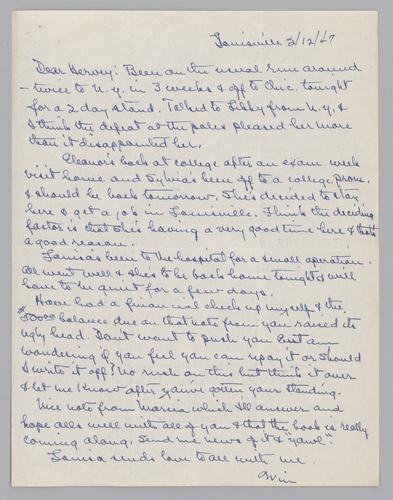 Louisville 2/12/47
Dear Hervey: Been on the usual run around
- twice to N.Y. in 3 weeks & off to Chic. tonight
for a 2 day stand. Talked to Libby from N.Y. &
I think the defeat at the poles pleased her more
than it disappointed her.
Eleanor's back at college after an exam week
visit home and Sylvia's been off to a college prom.
& should be back tomorrow. She's decided to stay
here & get a job in Louisville. I think the deciding
factor is that she's having a very good time here & that's
a good reason.
Louisa's been to the hospital for a small operation.
All went well & she's to be back home tonight & will
have to be quiet for a few days.
Have had a financial check up myself & the
$5000 balance due on that note from you raised its
ugly head. Don't want to push you but am
wondering if you feel you can repay it or should
I write it off? No rush on this but think it over
& let me know after you've gotten your standing.
Nice note from Marcia which I'll answer and
hope all's well with all of you & that the book is really
coming along. Send me news of it & "yawl".
Louisa sends love to all with me.
Win